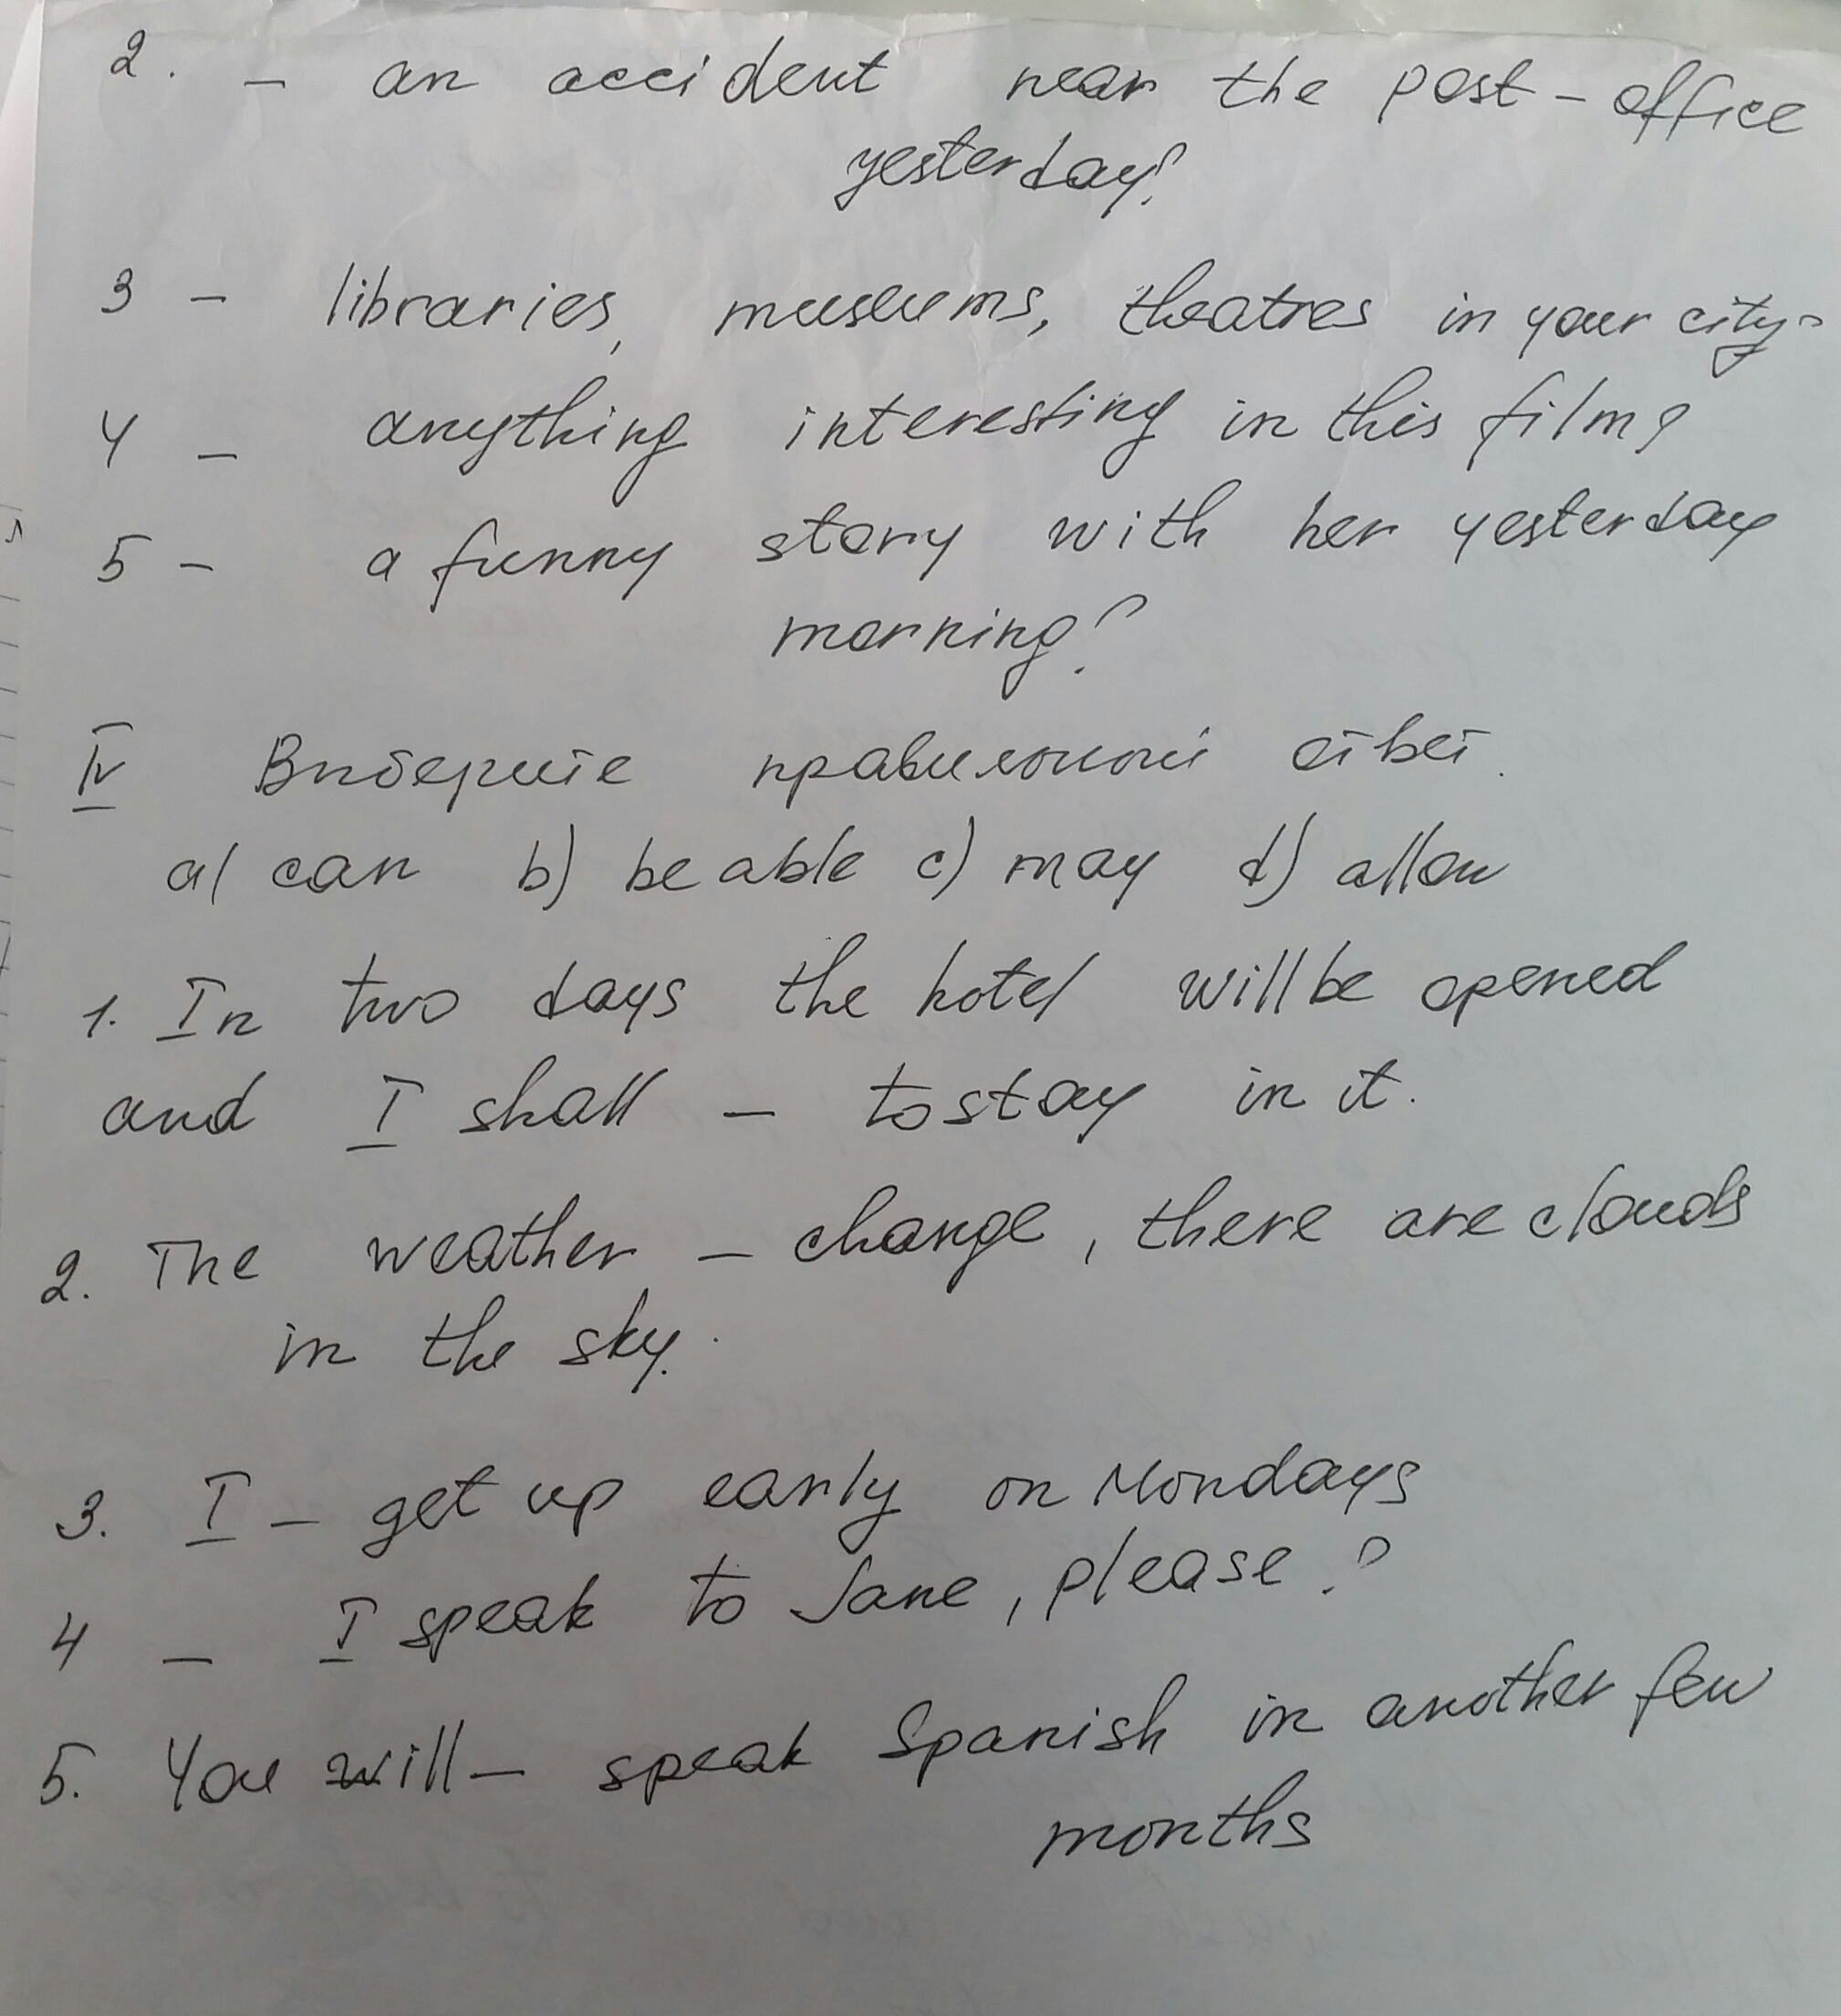 2. - an accident near the post-office
yesterday?
3 - libraries, museums, theatres in your city?
4 - anything interesting in this film?
5 - a funny story with her yesterday
morning?
IV Виберите правильний ответ.
a) can b) be able c) may d) allow
1. In two days the hotel will be opened
and I shall - to stay in it.
2. The weather - change, there are clouds
in the sky.
3. I - get up early on Mondays
4 - I speak to Jane, please?
5. You will - speak Spanish in another few
months